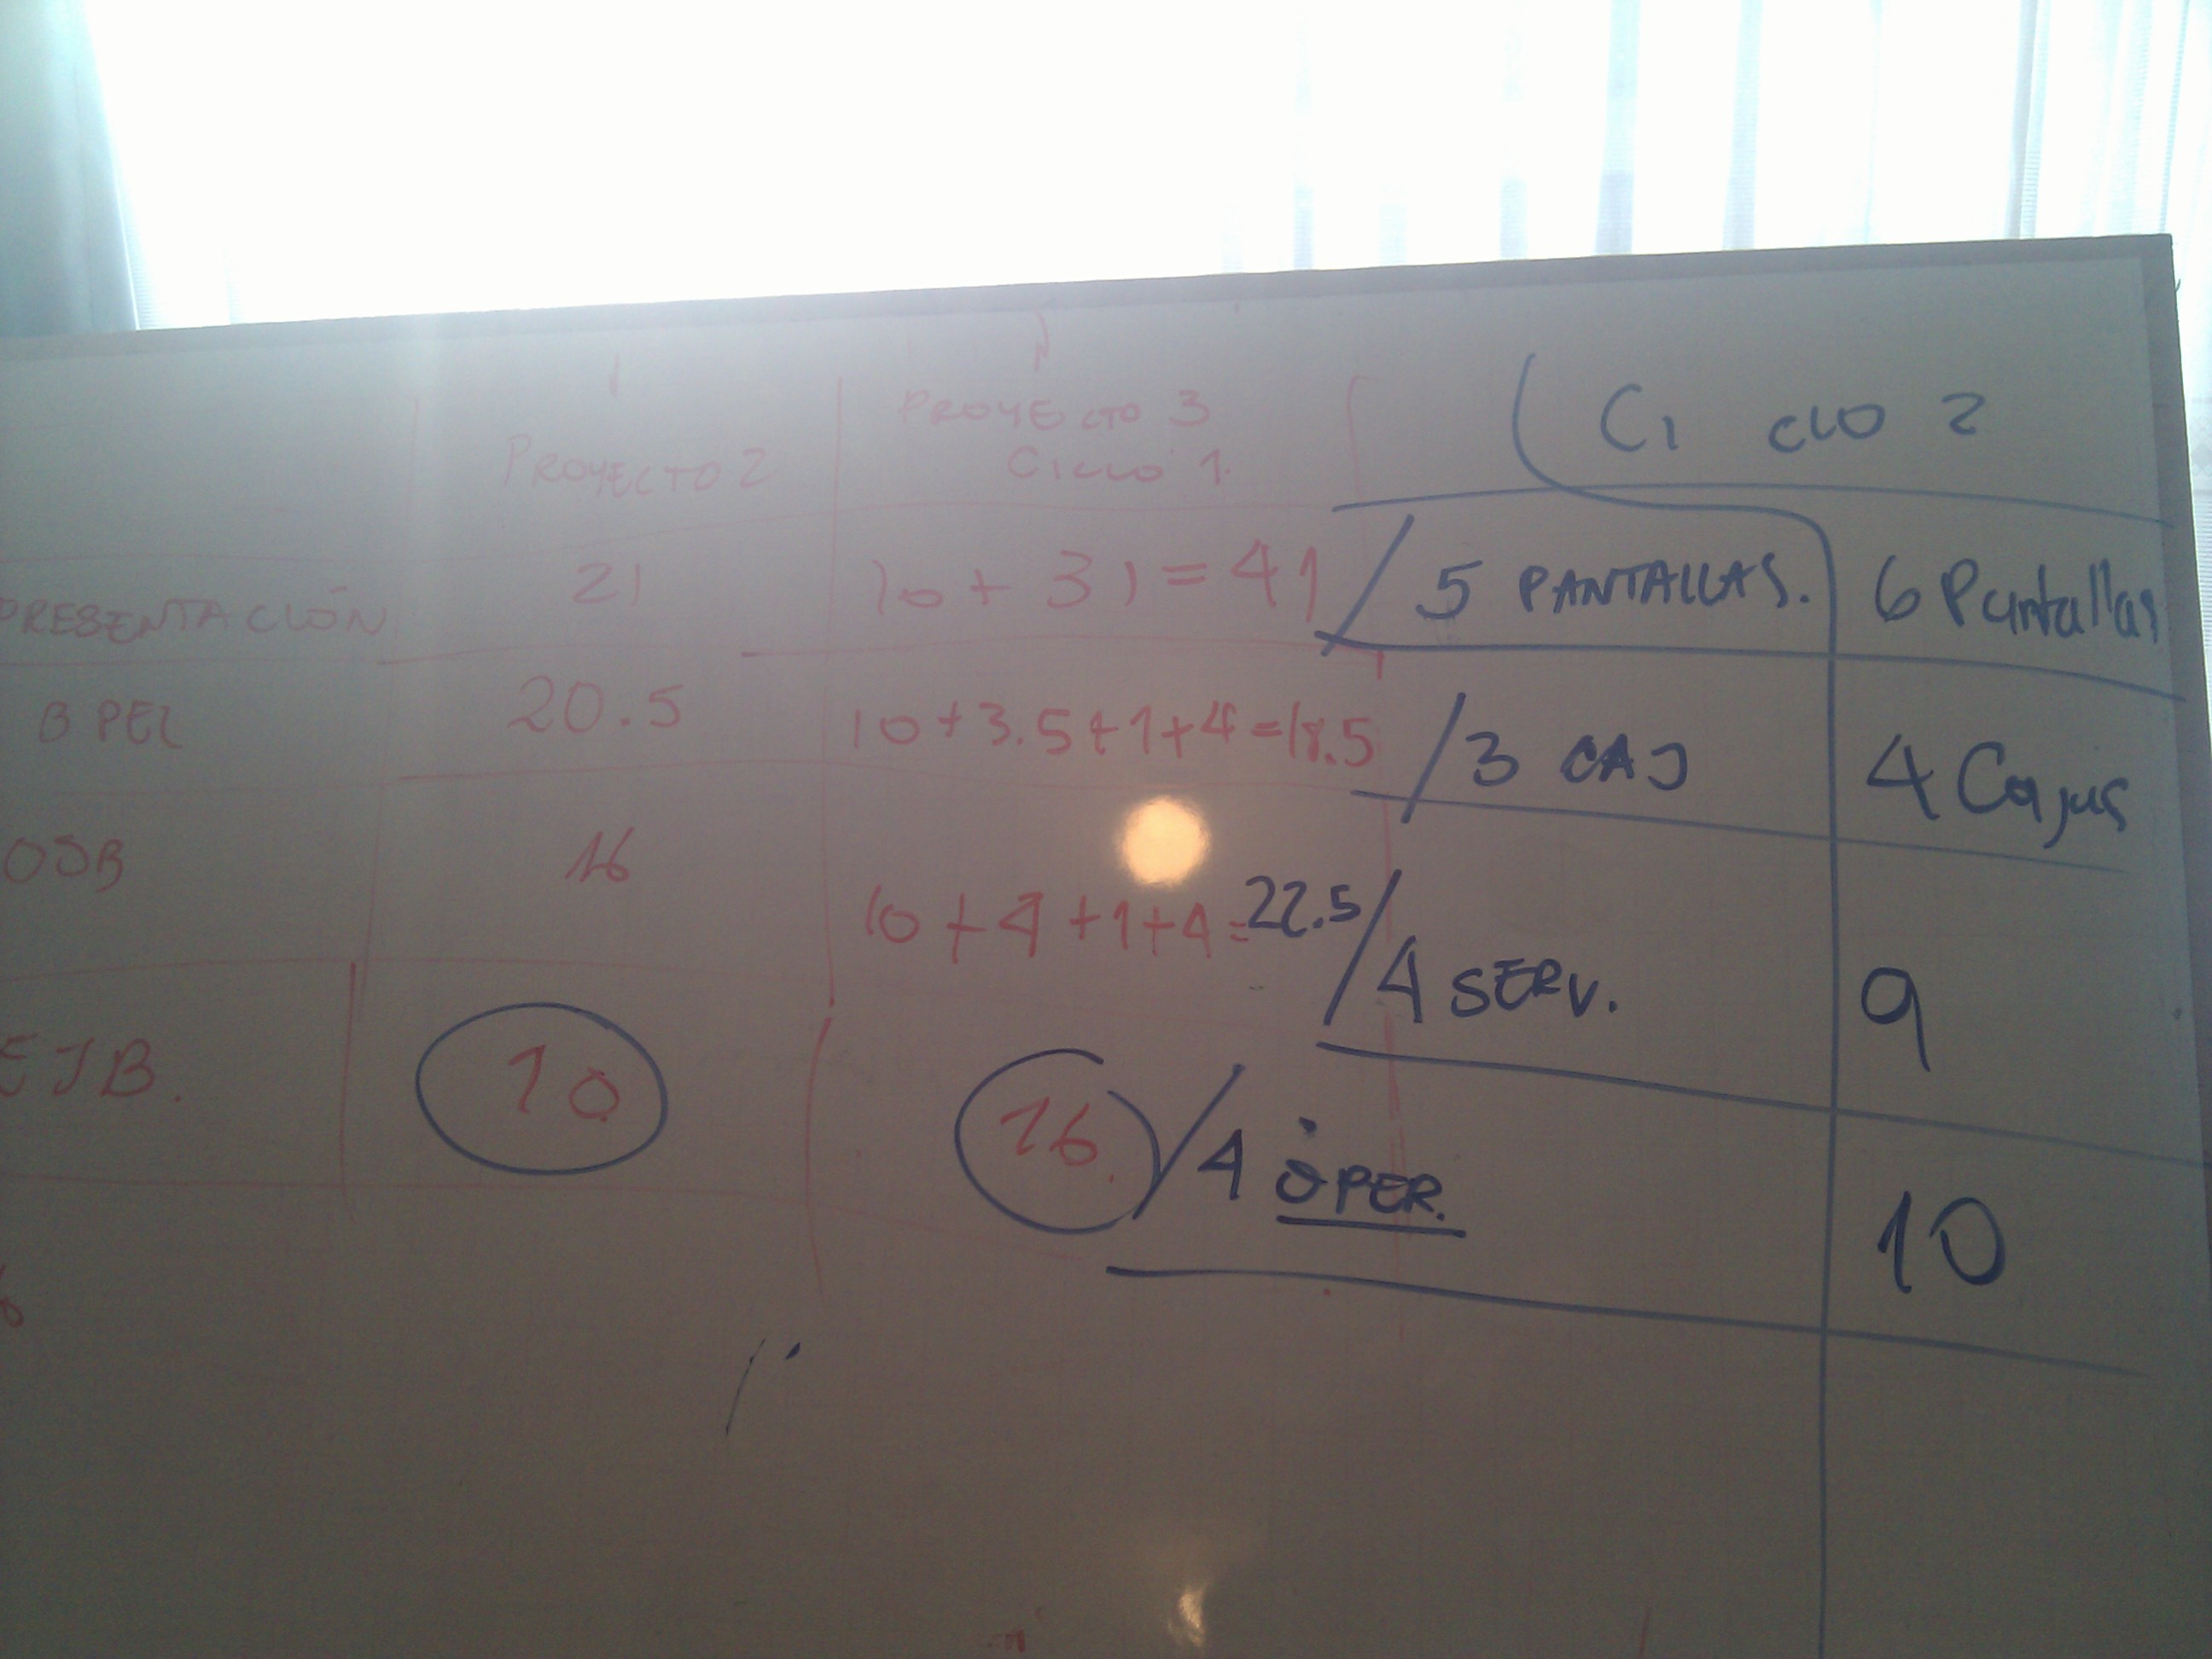 PROYECTO 2
PROYECTO 3
CICLO 1.
CICLO 2
PRESENTACIÓN 21 10 + 31 = 41 / 5 PANTALLAS. 6 Pantallas
BPEL 20.5 10+3.5+1+4=18.5 / 3 CAJ 4 Cajas
OSB 16 10+4+1+4= 22.5 / 4 SERV. 9
EJB. 10 16. / 4 OPER. 10